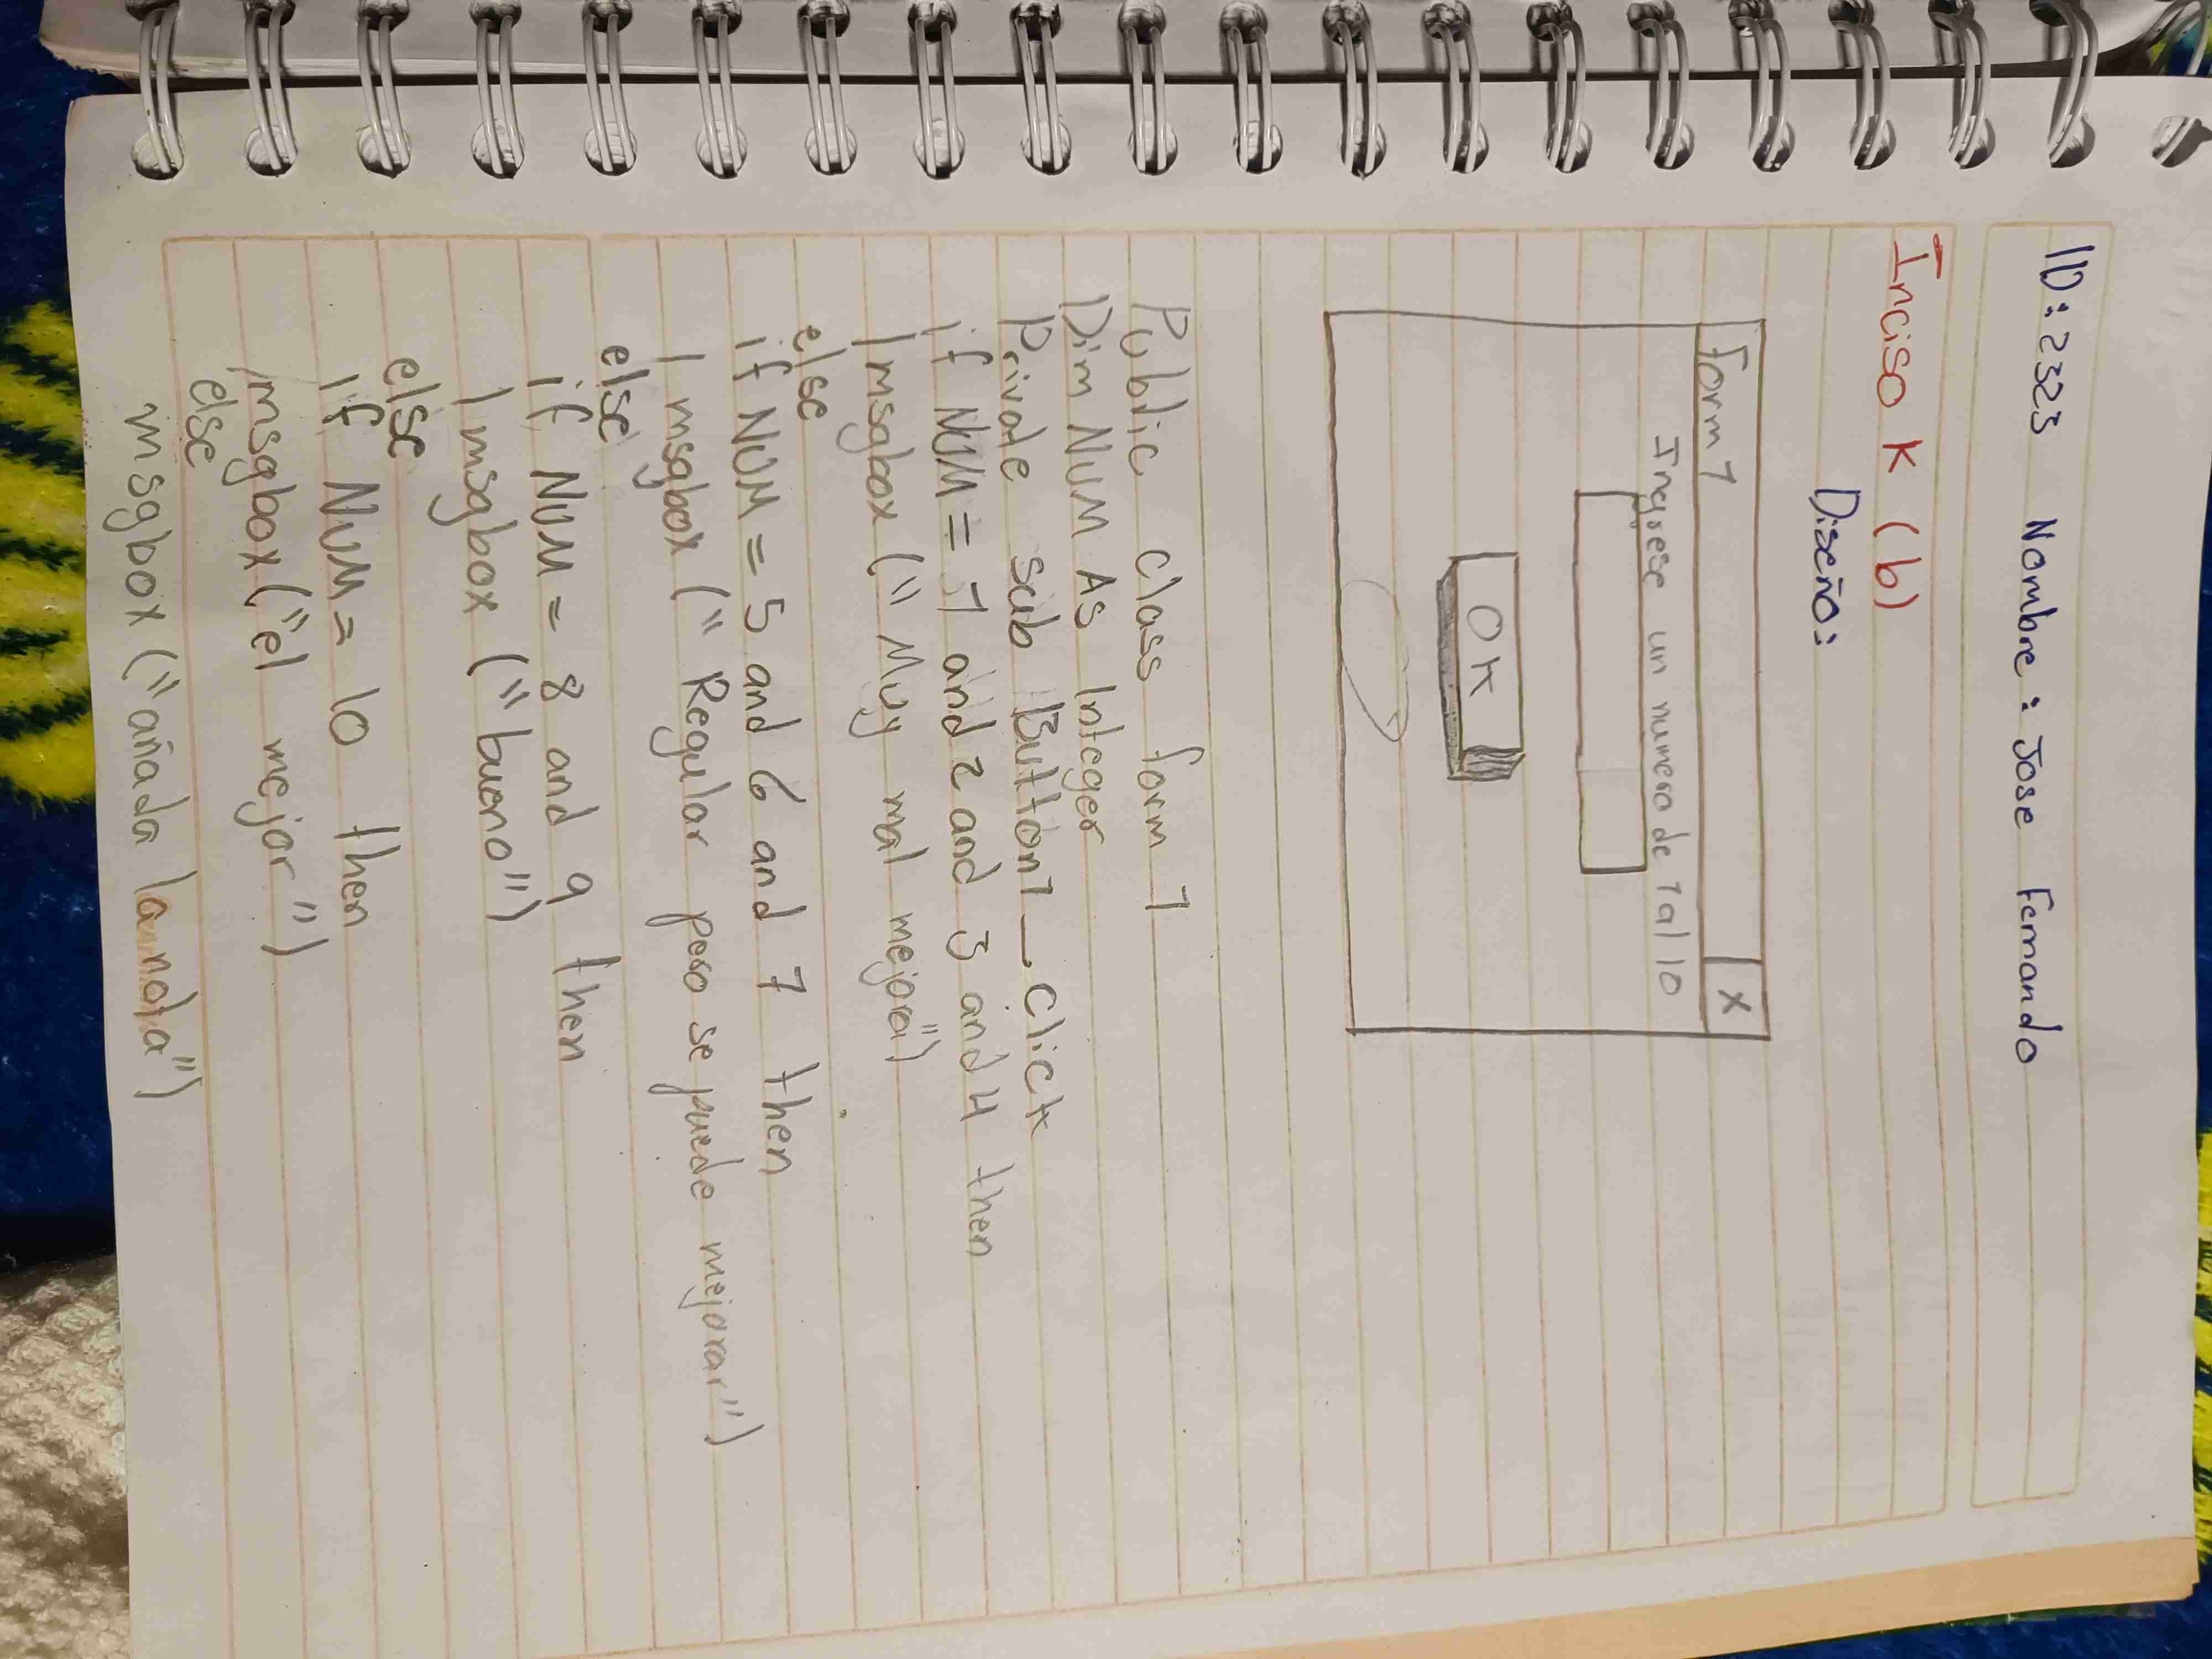 ID: 2323 Nombre: Jose Fernando
Inciso K (b)
Diseño:
Form 1 X
Ingrese un numero de 1 al 10
OK
Public class form 1
Dim NUM As Integer
Private sub Button1_click
if NUM = 1 and 2 and 3 and 4 then
msgbox ("Muy mal mejora")
else
if NUM = 5 and 6 and 7 then
msgbox ("Regular pero se puede mejorar")
else
if NUM = 8 and 9 then
msgbox ("bueno")
else
if NUM = 10 then
msgbox ("el mejor")
else
msgbox ("añada la nota")